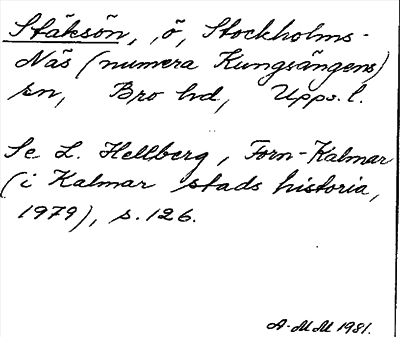 Stäksön, ö, Stockholms-
Näs (numera Kungsängens)
sn, Bro hd, Upps. l.
Se L. Hellberg, Forn-Kalmar
(i Kalmar stads historia,
1979), s. 126.
A-MM 1981.